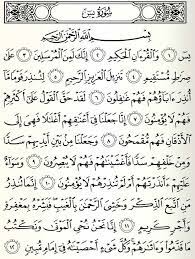 سُورَةُ يسٓ
بِسْمِ ٱللَّهِ ٱلرَّحْمَٰنِ ٱلرَّحِيمِ
يسٓ ١ وَٱلْقُرْءَانِ ٱلْحَكِيمِ ٢ إِنَّكَ لَمِنَ ٱلْمُرْسَلِينَ ٣ عَلَىٰ
صِرَٰطٍ مُّسْتَقِيمٍ ٤ تَنزِيلَ ٱلْعَزِيزِ ٱلرَّحِيمِ ٥ لِتُنذِرَ قَوْمًا مَّآ
أُنذِرَ ءَابَآؤُهُمْ فَهُمْ غَٰفِلُونَ ٦ لَقَدْ حَقَّ ٱلْقَوْلُ عَلَىٰٓ أَكْثَرِهِمْ
فَهُمْ لَا يُؤْمِنُونَ ٧ إِنَّا جَعَلْنَا فِىٓ أَعْنَٰقِهِمْ أَغْلَٰلًا فَهِىَ
إِلَى ٱلْأَذْقَانِ فَهُم مُّقْمَحُونَ ٨ وَجَعَلْنَا مِنۢ بَيْنِ أَيْدِيهِمْ سَدًّا
وَمِنْ خَلْفِهِمْ سَدًّا فَأَغْشَيْنَٰهُمْ فَهُمْ لَا يُبْصِرُونَ ٩ وَسَوَآءٌ
عَلَيْهِمْ ءَأَنذَرْتَهُمْ أَمْ لَمْ تُنذِرْهُمْ لَا يُؤْمِنُونَ ١٠ إِنَّمَا تُنذِرُ
مَنِ ٱتَّبَعَ ٱلذِّكْرَ وَخَشِىَ ٱلرَّحْمَٰنَ بِٱلْغَيْبِ فَبَشِّرْهُ بِمَغْفِرَةٍ
وَأَجْرٍ كَرِيمٍ ١١ إِنَّا نَحْنُ نُحْىِ ٱلْمَوْتَىٰ وَنَكْتُبُ
مَا قَدَّمُوا۟ وَءَاثَٰرَهُمْ وَكُلَّ شَىْءٍ أَحْصَيْنَٰهُ فِىٓ إِمَامٍ مُّبِينٍ ١٢